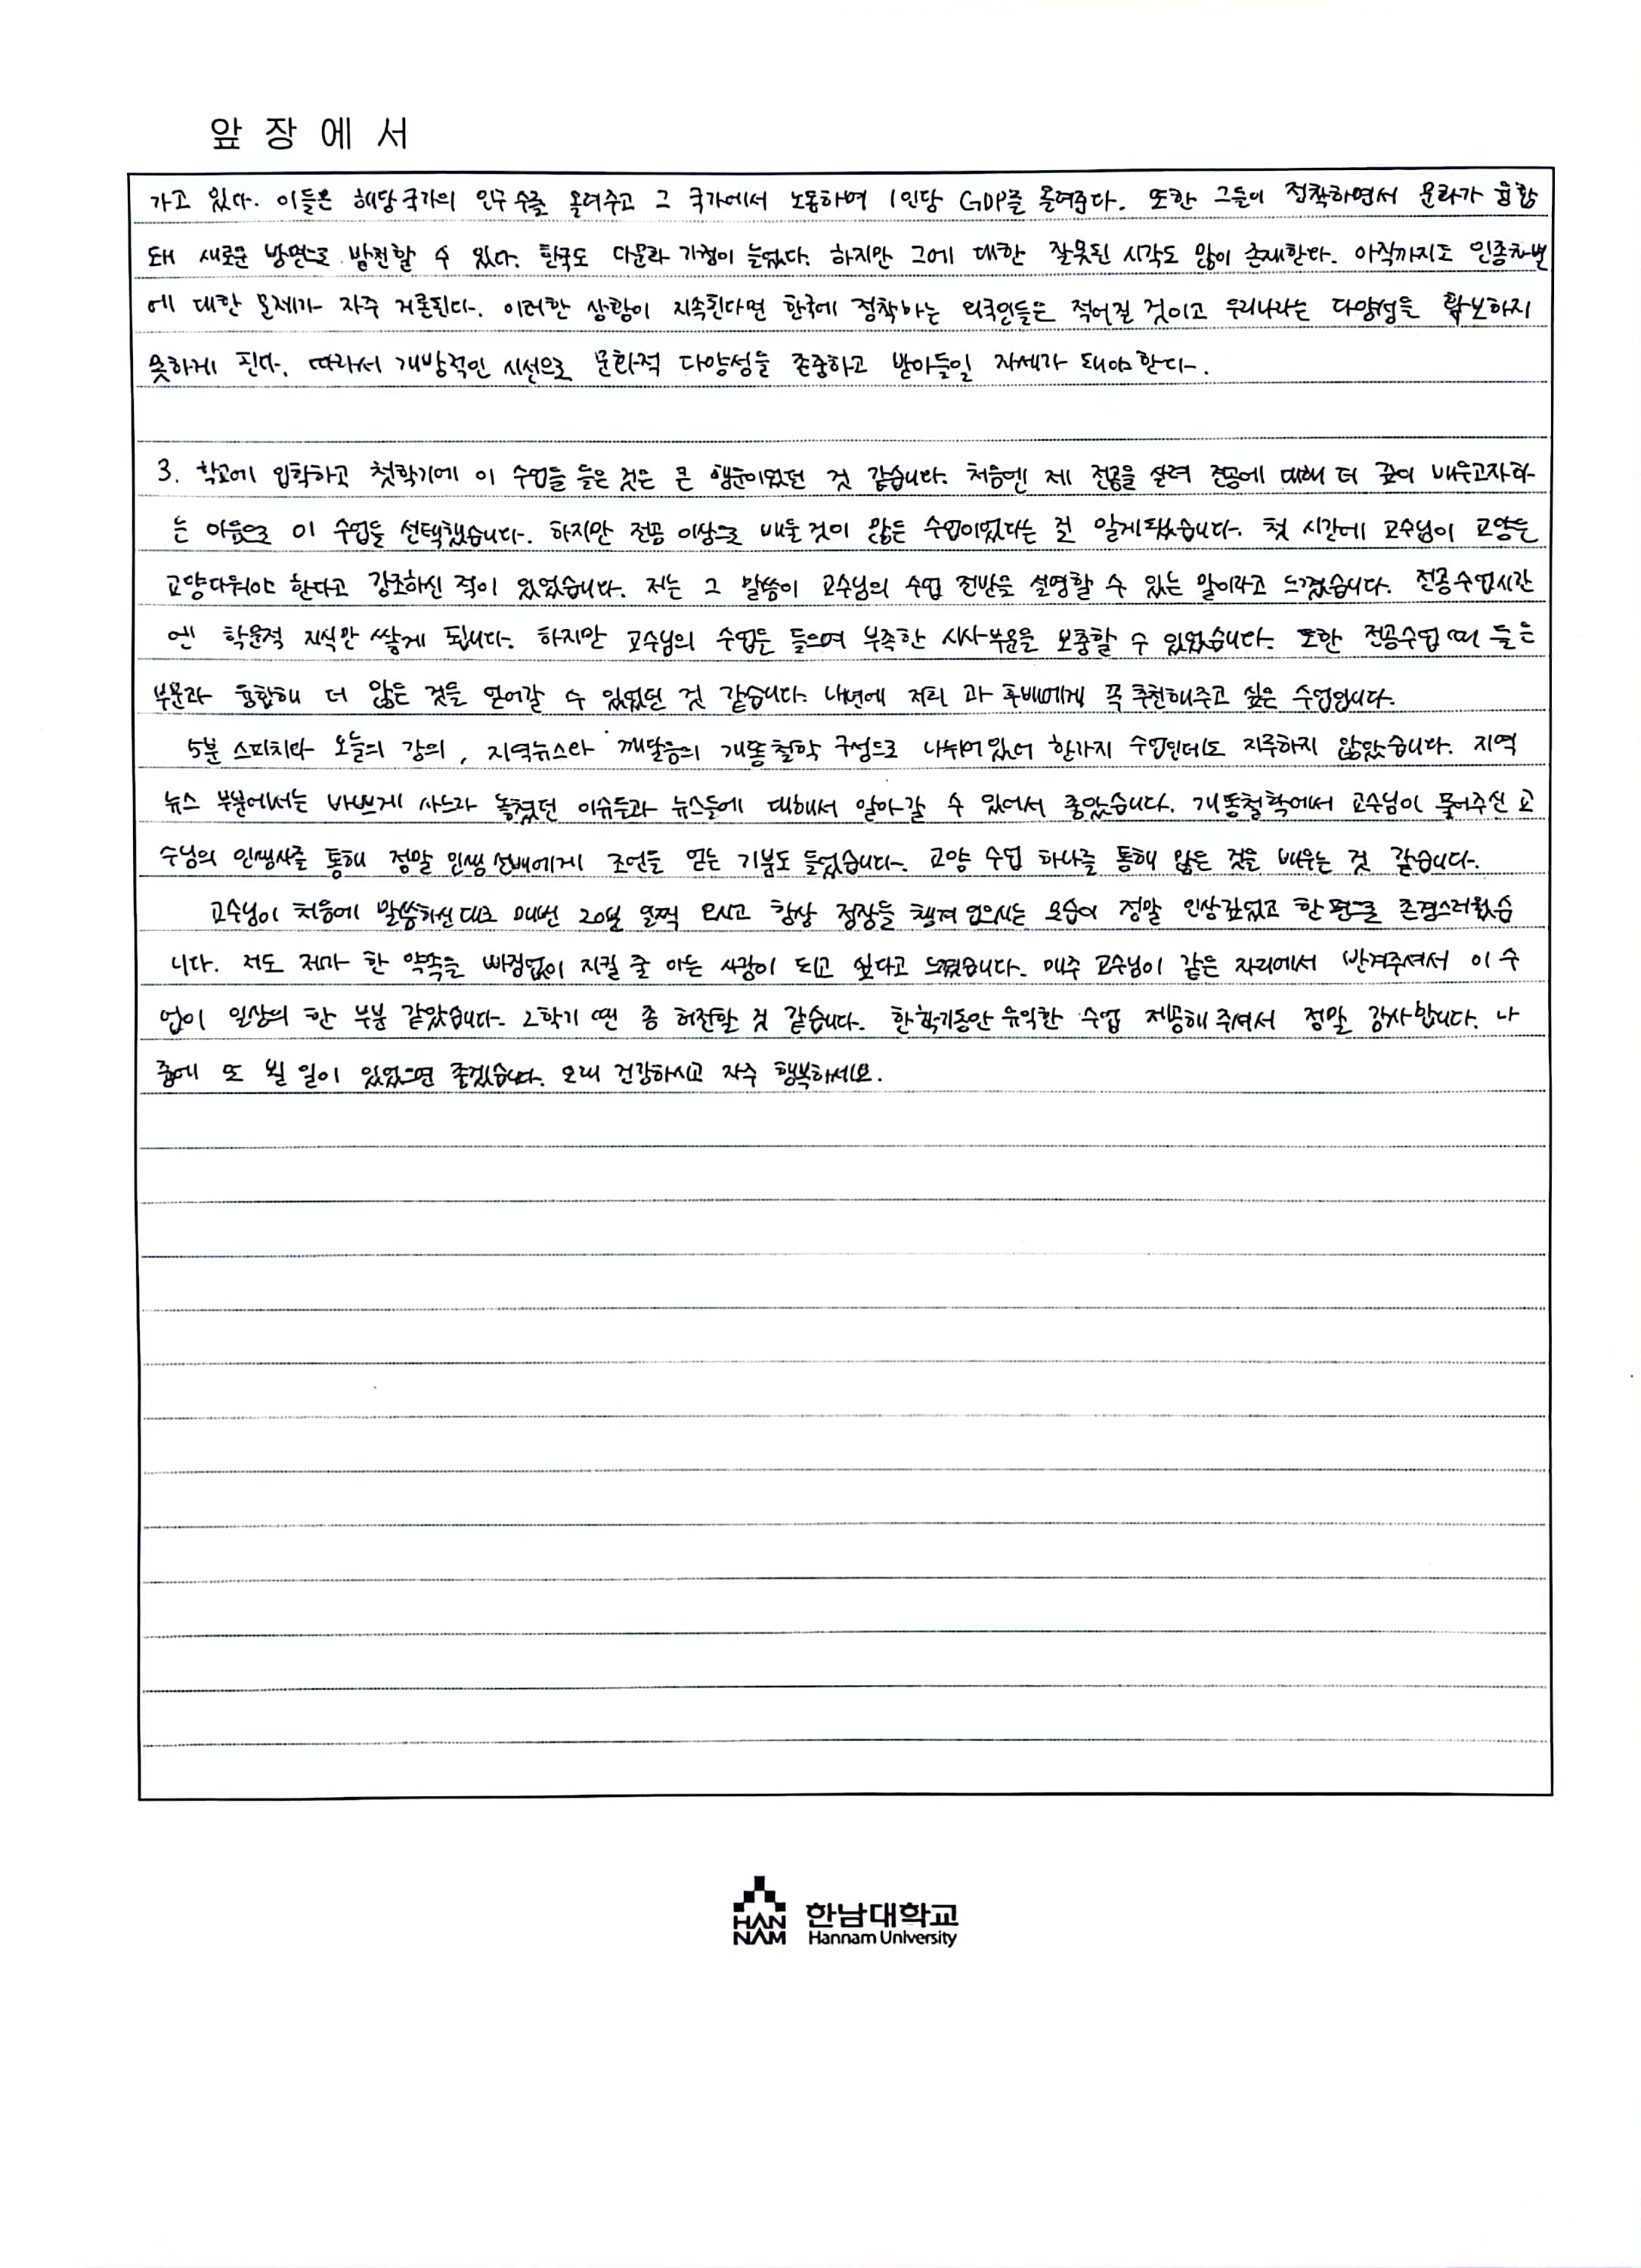 앞 장 에 서
가고 있다. 이들은 해당 국가의 인구 수를 올려주고 그 국가에서 노동하며 1인당 GDP를 올려준다. 또한 그들이 정착하면서 문화가 융합
돼 새로운 방면으로 발전할 수 있다. 한국도 다문화 가정이 늘었다. 하지만 그에 대한 잘못된 시각도 많이 존재한다. 아직까지도 인종차별
에 대한 문제가 자주 거론된다. 이러한 상황이 지속된다면 한국에 정착하는 외국인들은 적어질 것이고 우리나라는 다양성을 확보하지
못하게 된다. 따라서 개방적인 시선으로 문화적 다양성을 존중하고 받아들일 자세가 돼야 한다.
3. 학교에 입학하고 첫학기에 이 수업을 들은 것은 큰 행운이었던 것 같습니다. 처음엔 제 전공을 살려 전공에 대해 더 깊이 배우고자하
는 마음으로 이 수업을 선택했습니다. 하지만 전공 이상으로 배울 것이 많은 수업이었다는 걸 알게됐습니다. 첫 시간에 교수님이 교양은
교양다워야 한다고 강조하신 적이 있었습니다. 저는 그 말씀이 교수님의 수업 전반을 설명할 수 있는 말이라고 느꼈습니다. 전공수업시간
엔 학문적 지식만 쌓게 됩니다. 하지만 교수님의 수업을 들으며 부족한 시사부문을 보충할 수 있었습니다. 또한 전공수업 때 들은
부문과 융합해 더 많은 것을 얻어갈 수 있었던 것 같습니다. 내년에 저희 과 후배에게 꼭 추천해주고 싶은 수업입니다.
5분 스피치와 오늘의 강의, 지역뉴스와 깨달음의 개똥철학 구성으로 나뉘어 있어 한가지 수업인데도 지루하지 않았습니다. 지역
뉴스 부분에서는 바쁘게 사느라 놓쳤던 이슈들과 뉴스들에 대해서 알아갈 수 있어서 좋았습니다. 개똥철학에서 교수님이 풀어주신 교
수님의 인생사를 통해 정말 인생 선배에게 조언을 얻는 기분도 들었습니다. 교양 수업 하나를 통해 많은 것을 배우는 것 같습니다.
교수님이 처음에 말씀하신대로 매번 20분 일찍 오시고 항상 정장을 챙겨 입으시는 모습이 정말 인상깊었고 한편으로 존경스러웠습
니다. 저도 제가 한 약속을 빠짐없이 지킬 줄 아는 사람이 되고 싶다고 느꼈습니다. 매주 교수님이 같은 자리에서 반겨주셔서 이 수
업이 일상의 한 부분 같았습니다. 2학기 땐 좀 허전할 것 같습니다. 한학기동안 유익한 수업 제공해 주셔서 정말 감사합니다. 나
중에 또 뵐 일이 있었으면 좋겠습니다. 오래 건강하시고 자주 행복하세요.
HAN
NAM
한남대학교
Hannam University